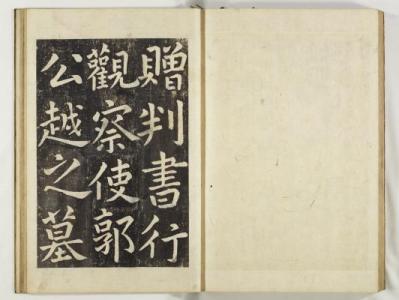 贈判書行
觀察使郭
公越之墓